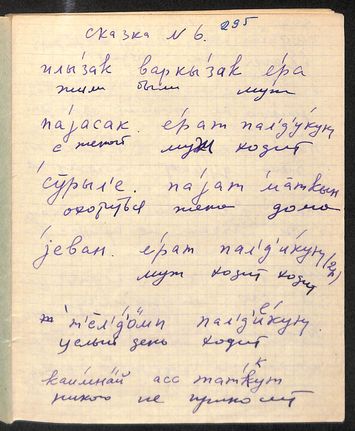 сказка N 6. 295
илы́зак варкы́зак е́ра
жили были муж
па́јасак. е́рат пал'д'у́кун
с женой муж ходит
сӯ́рыл'е. па́јат ма̄тқын
охотиться жена дома
је́ван. е́рат пал'д'и́кун (2р)
муж ходит ходит
т'ел'д'о́мп пал'д'и́кун.
целый день ходит
каимна́й асс таткут
никого не приносит